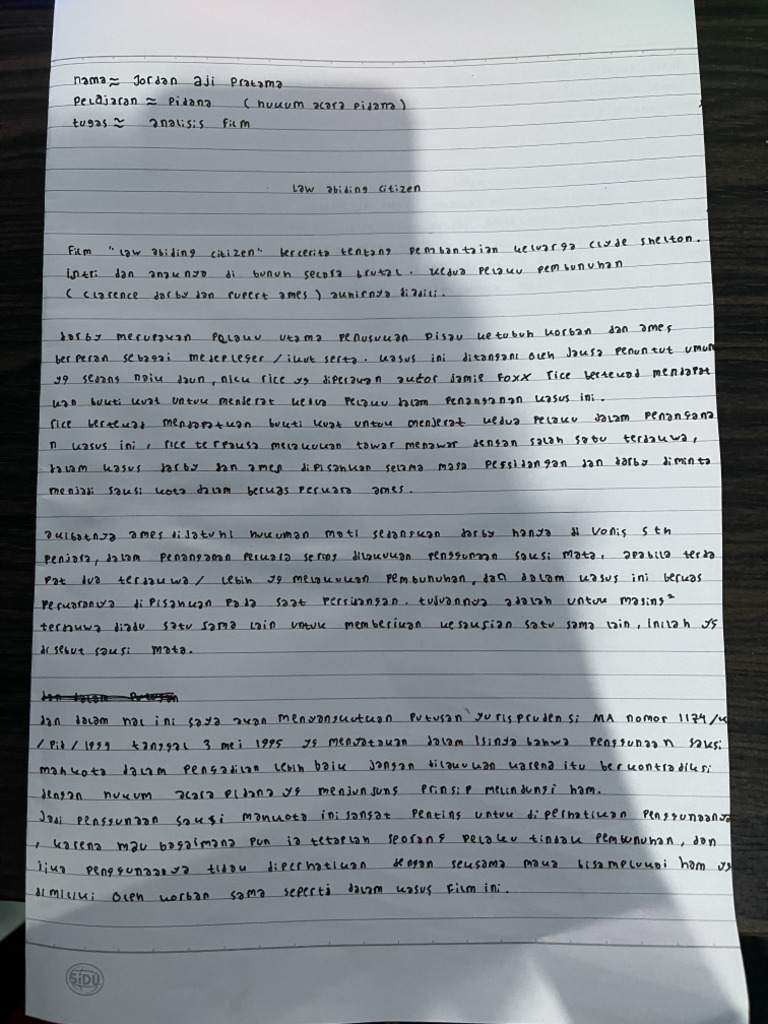 nama ≈ Jordan aji Pratama
Pelajaran ≈ Pidana (hukum acara Pidana)
tugas ≈ analisis Film
Law abiding citizen
Film "law abiding citizen" bercerita tentang pembantaian keluarga clyde shelton.
istri dan anaknya di bunuh secara brutal. kedua pelaku pembunuhan
(clarence darby dan rupert ames) akhirnya diadili.
darby merupakan pelaku utama penusukan pisau ketubuh korban dan ames
berperan sebagai medepleger / ikut serta. kasus ini ditangani oleh Jaksa penuntut umum
yg sedang naik daun, nick rice yg diperankan auctor Jamie Foxx rice bertekad mendapat
kan bukti kuat untuk menderat kedua pelaku dalam penanganan kasus ini.
rice bertekad mendapatkan bukti kuat untuk menjerat kedua pelaku dalam penangana
n kasus ini, rice terpaksa melakukan tawar menawar dengan salah satu terdakwa,
dalam kasus darby dan ames dipisahkan selama masa persidangan dan darby diminta
menjadi saksi kota dalam berkas perkara ames.
akibatnya ames dijatuhi hukuman mati sedangkan darby hanya di vonis 5 th
penjara, dalam penanganan perkara sering dilakukan penggunaan saksi mata. apabila terda
pat dua terdakwa / lebih yg melakukan pembunuhan, dan dalam kasus ini berkas
perkaranya dipisahkan pada saat persidangan. tujuannya adalah untuk masing²
terdakwa diadu satu sama lain untuk memberikan kesaksian satu sama lain, inilah yg
disebut saksi mata.
dan dalam hal ini saya akan menyangkutkan putusan yurisprudensi MA nomor 1174/k
/Pid/1994 tanggal 3 mei 1995 yg menyatakan dalam isinya bahwa penggunaan saksi
mahkota dalam pengadilan lebih baik jangan dilakukan karena itu berkontradiksi
dengan hukum acara pidana yg menjunjung prinsip melindungi ham.
Jadi penggunaan saksi mahkota ini sangat penting untuk diperhatikan penggunaanya
, karena mau bagaimana pun ia tetaplah seorang pelaku tindak pembunuhan, dan
jika penggunaanya tidak diperhatikan dengan seksama maka bisa melukai ham yg
dimiliki oleh korban sama seperti dalam kasus Film ini.
SiDU